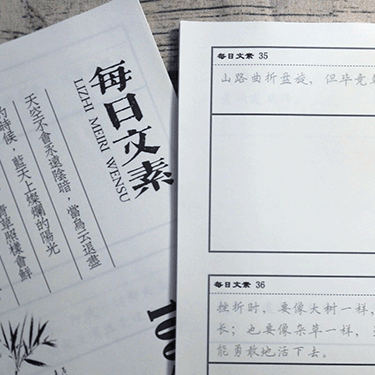 每日文素
LIZHI MEIRI WENSU
天空不會永遠陰暗，當烏云退盡
的時候，藍天上燦爛的陽光
青草照樣會鮮
100
每日文素 35
山路曲折盘旋，但毕竟
每日文素 36
挫折时、要像大树一样，
长；也要像杂草一样，
能勇敢地活下去。